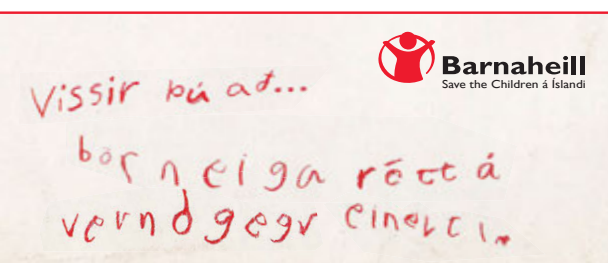 Barnaheill
Save the Children á Íslandi
Vissir þú að...
börn eiga rétt á
vernd gegn einelti.